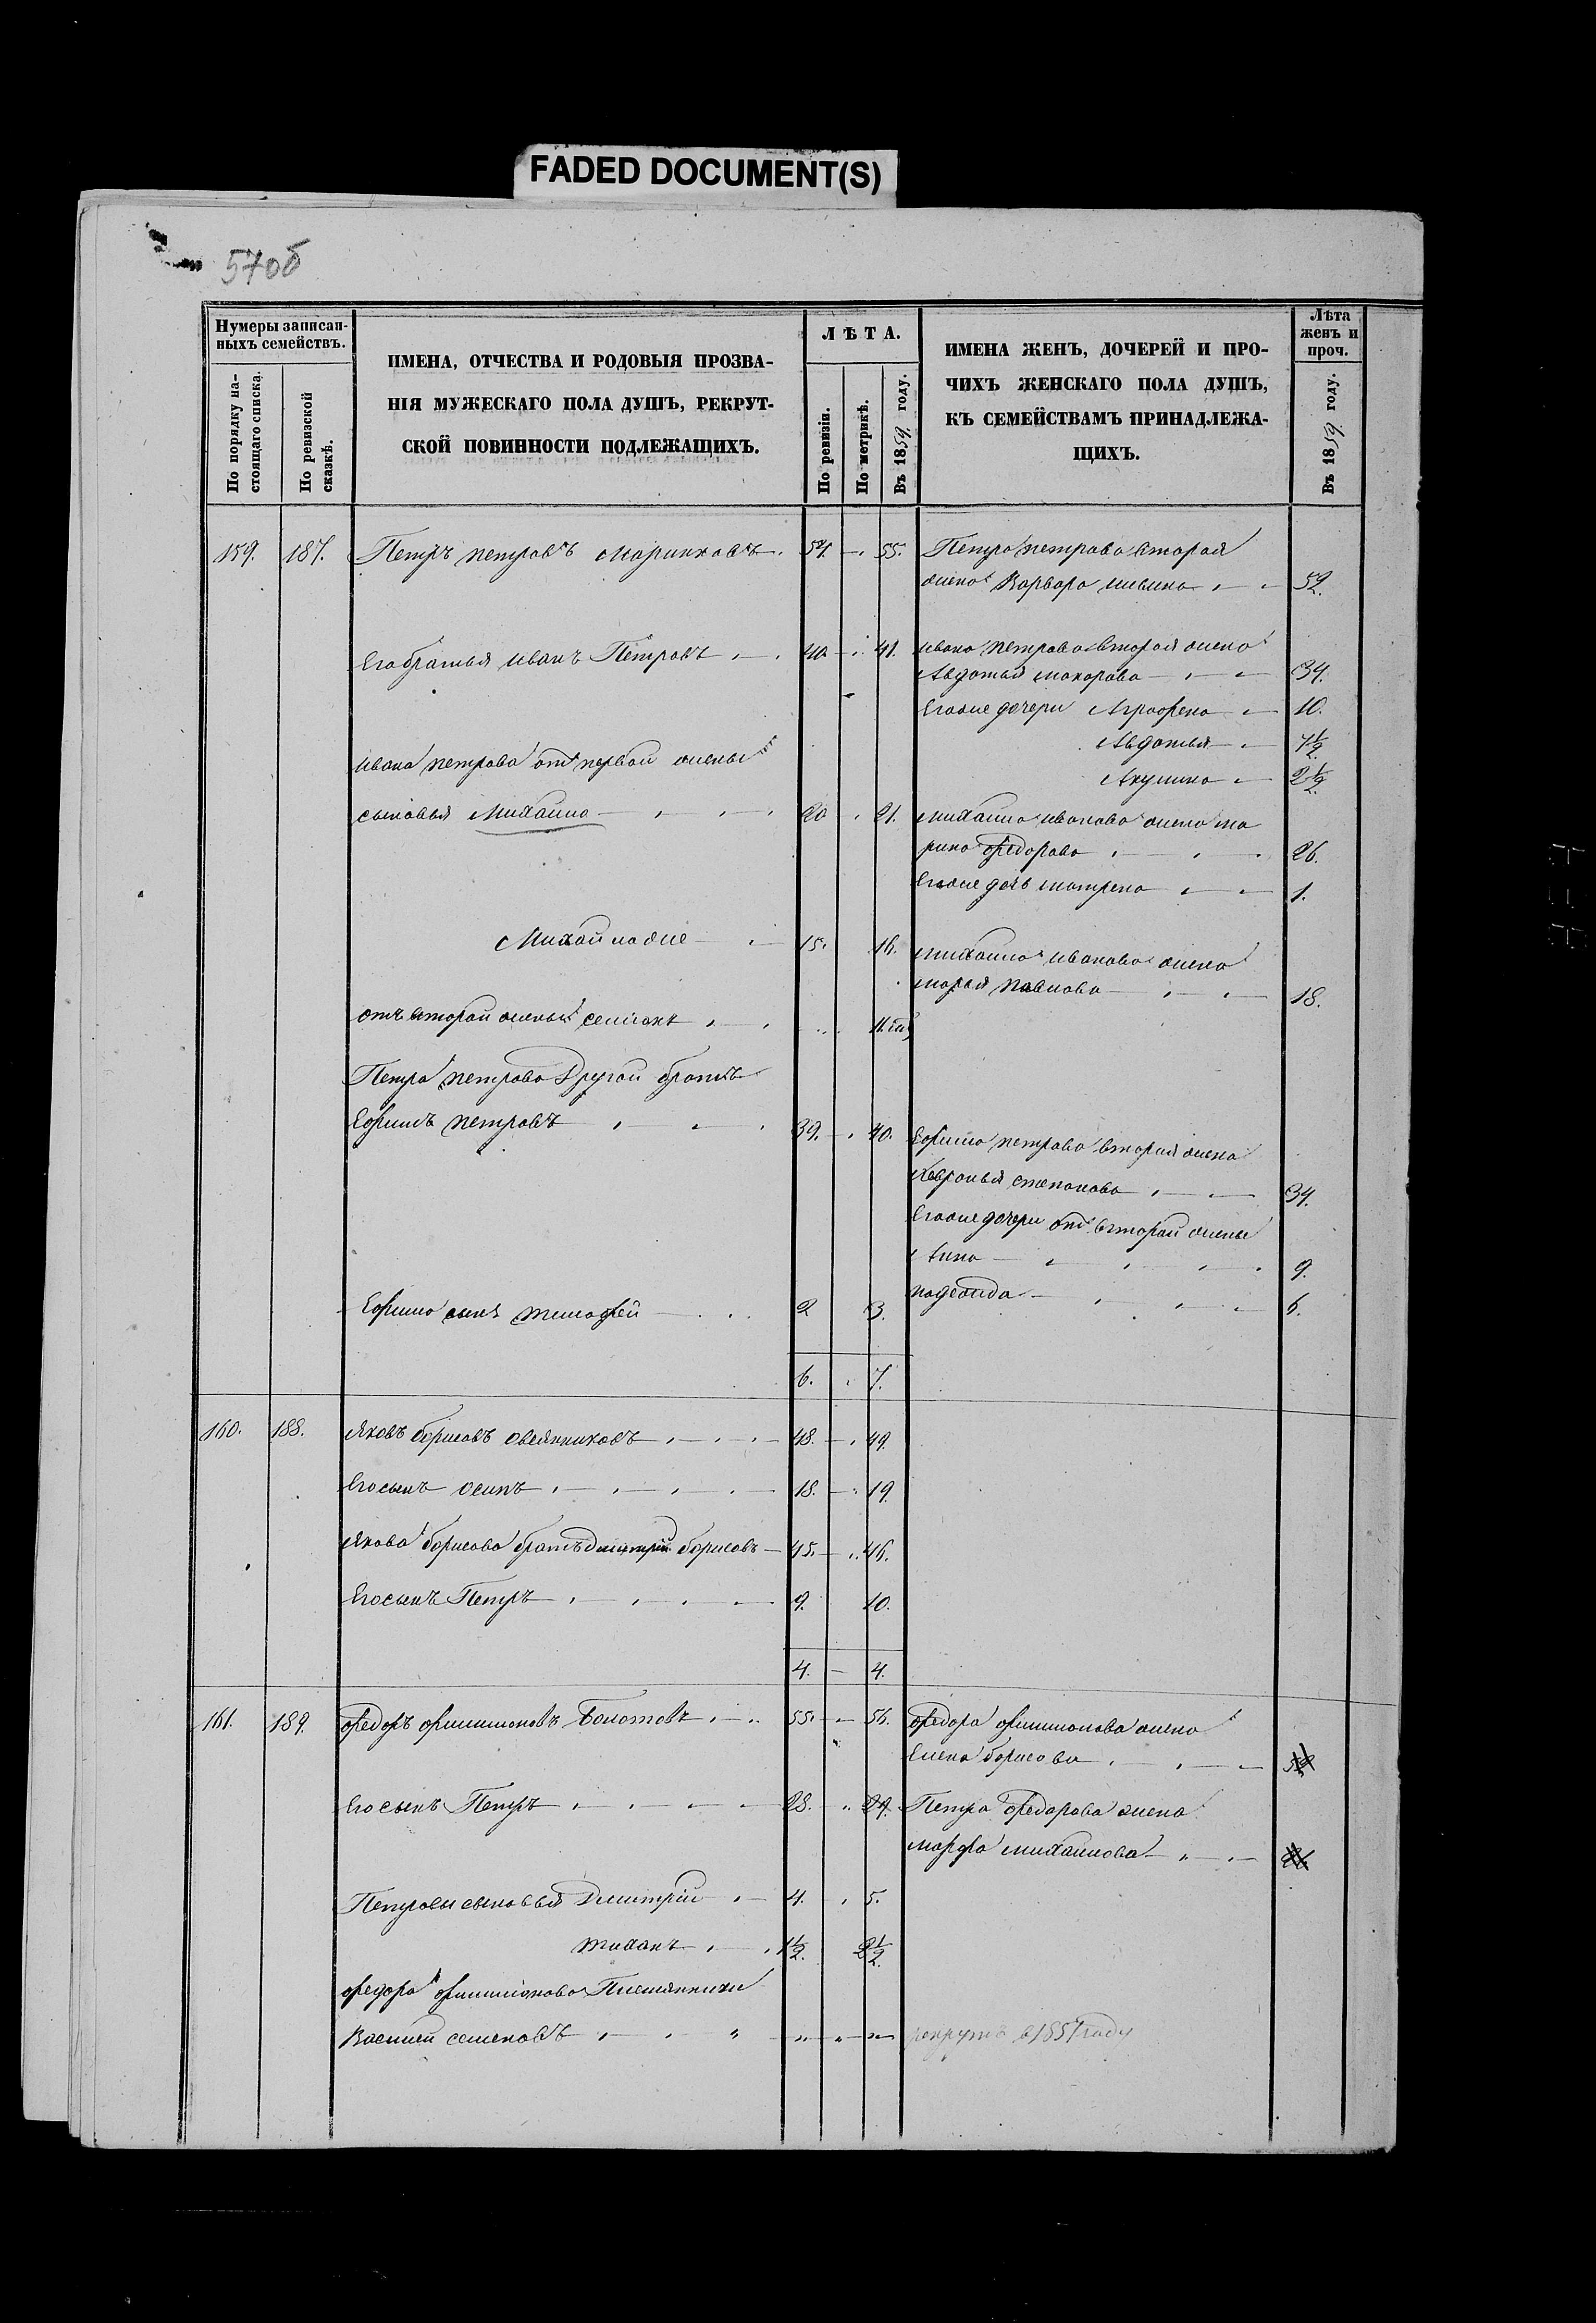 FADED DOCUMENT(S)
570б
Нумеры записанныхъ семействъ.
По порядку настоящаго списка.
По ревизской сказкѣ.
ИМЕНА, ОТЧЕСТВА И РОДОВЫЯ ПРОЗВА-
НІЯ МУЖЕСКАГО ПОЛА ДУШЪ, РЕКРУТ-
СКОЙ ПОВИННОСТИ ПОДЛЕЖАЩИХЪ.
ЛѢТА.
По ревизіи.
По метрикѣ.
Въ 1859 году.
ИМЕНА ЖЕНЪ, ДОЧЕРЕЙ И ПРО-
ЧИХЪ ЖЕНСКАГО ПОЛА ДУШЪ,
КЪ СЕМЕЙСТВАМЪ ПРИНАДЛЕЖА-
ЩИХЪ.
Лѣта
женъ и
проч.
Въ 1859 году.
159. 187. Петръ петровъ Маринковъ. 54. 55. Петра петрова вторая
жена Варвара 52.
Его братья иванъ Петровъ 40 41. ивана петрова вторая жена
Авдотья макарова 34.
Егоже дочери Аграфена 10.
Авдотья 7½
ивана петрова отъ первой жены
Акулина 2½
сыновья Михайла 20 21. михайла иванова жена ма
рина федорова 26.
Егоже дочь матрена 1.
Михайла же 15. 16. михайла иванова жена
марья павлова 18.
отъ второй жены 11
Петра петрова Другой братъ
Ефимъ петровъ 39. 40. Ефима петрова вторая жена
Хавронья степанова 34.
Егоже дочери отъ второй жены
Анна 9.
надежда 6.
Ефима сынъ тимофей 2 3.
6. 7.
160. 188. Яковъ борисовъ овсянниковъ 48. 49.
Его сынъ осипъ 18. 19.
Якова борисова братъ дмитрій борисовъ 45. 46.
Его сынъ Петръ 9. 10.
4. 4.
161. 189. федоръ филимоновъ Болотовъ 55. 56. федора филимонова жена
Елена борисова
Его сынъ Петръ 28. 29. Петра федорова жена
марфа михайлова
Петровы сыновья Дмитрій 4. 5.
тихонъ 1½ 2½
федора филимонова Племянники
Василей семеновъ рекрутъ в 1857 году